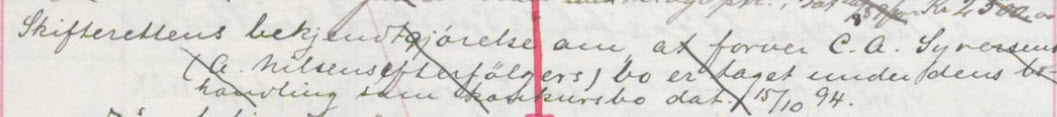 Kr 4500
Skifterettens bekjendtgjörelse om at forvei C. A. Syversens
(A. Nilsens efterfölgers) bo er taget under dens be-
handling som konkursbo dat. 15/10 94.